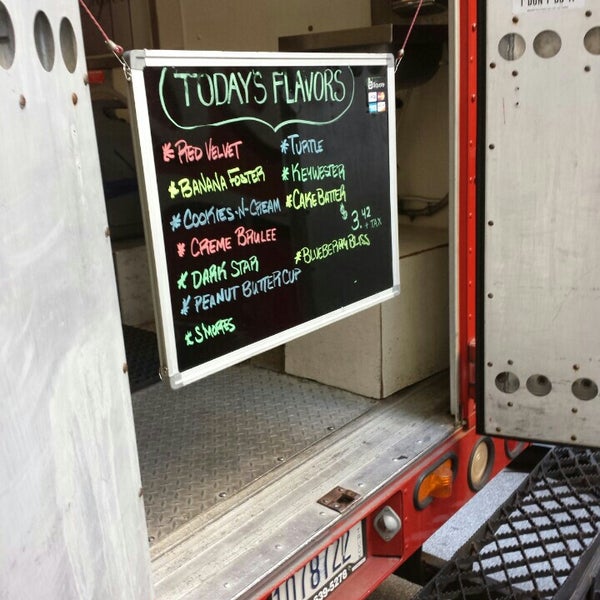 TODAY'S FLAVORS
*RED VELVET
*BANANA FOSTER
*COOKIES-N-CREAM
*CREME BRULEE
*DARK STAR
*PEANUT BUTTERCUP
*S'MORES
*TURTLE
*KEYWESTER
*CAKE BATTER
$3.42
+ TAX
*BLUEBERRY BLISS